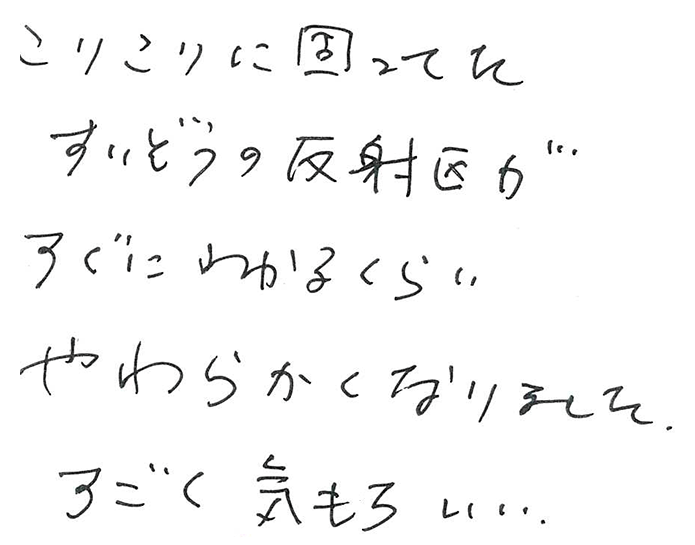 こりこりに固ってた
すいぞうの反射区が…
すぐにわかるくらい
やわらかくなりました.
すごく気もちいい..